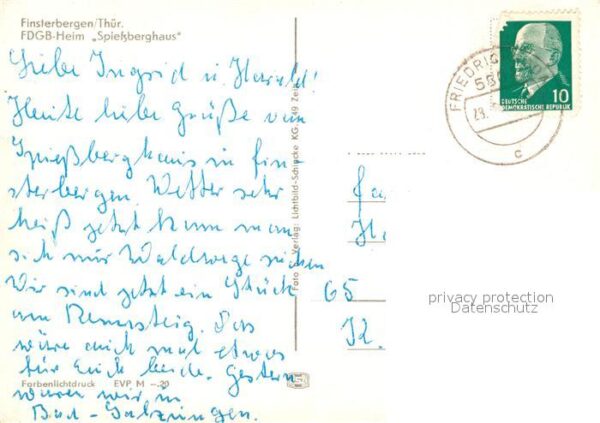 Finsterbergen/Thür.
FDGB-Heim „Spießberghaus"
Liebe Ingrid u. Harald!
Heute liebe Grüße vom
Spießberghaus in Fin-
sterbergen. Wetter sehr
heiß jetzt kann man
sich nur Waldwege suchen
Wir sind jetzt ein Stück
am Rennsteig. Das
wäre auch mal etwas
für Euch beide. Gestern
waren wir in
Bad-Salzungen.
Farbenlichtdruck EVP M -.20
Foto u. Verlag: Lichtbild-Schincke KG, 49 Zeitz
FRIEDRICH
580
29.
c
DEUTSCHE
DEMOKRATISCHE REPUBLIK
10
Fa
Ha
65
12.
privacy protection
Datenschutz